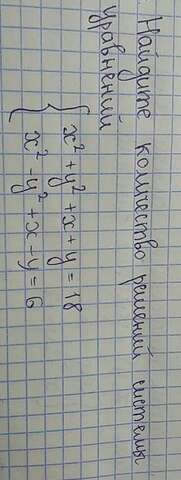 Найдите количество решений системы
уравнений
{ x² + y² + x + y = 18
x² - y² + x - y = 6